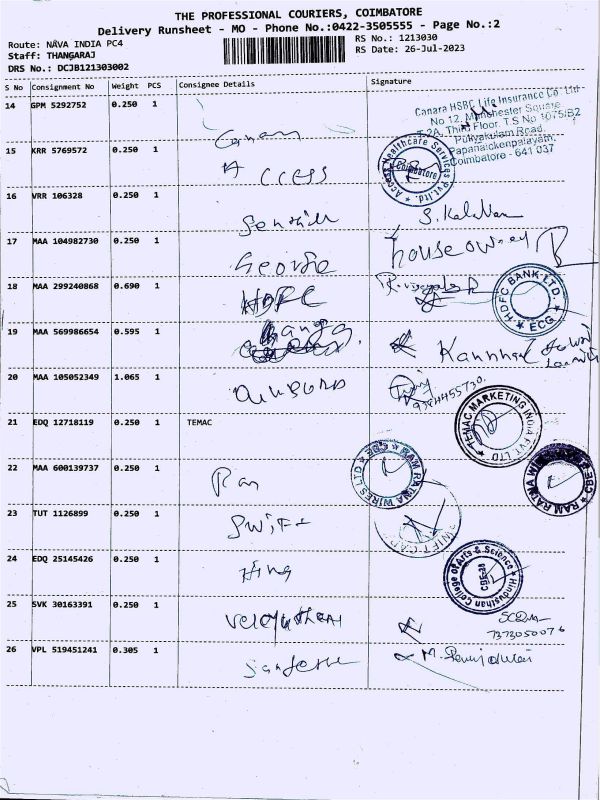 THE PROFESSIONAL COURIERS, COIMBATORE
Delivery Runsheet - MO - Phone No.:0422-3505555 - Page No.:2
Route: NAVA INDIA PC4
RS No.: 1213030
Staff: THANGARAJ
RS Date: 26-Jul-2023
DRS No.: DCJB121303002
S No Consignment No Weight PCS Consignee Details Signature
14 GPM 5292752 0.250 1
Canara HSBC Life Insurance Co. Ltd
No 12, Manchester Square
T-2A, Third Floor, T.S No 1075/B2
Puliyakulam Road,
Papanaickenpalayam,
Coimbatore - 641 037
Canara
15 KRR 5769572 0.250 1
Access Healthcare Services Pvt.ltd.
Coimbatore
Access
16 VRR 106328 0.250 1
17 MAA 104982730 0.250 1
house owner
George
18 MAA 299240868 0.690 1
HDFC
HDFC BANK LTD.
ECG
19 MAA 569986654 0.595 1
20 MAA 105052349 1.065 1
21 EDQ 12718119 0.250 1 TEMAC
TEMAC MARKETING INDIA PVT LTD
22 MAA 600139737 0.250 1
Ram
RAM RATNA WIRES LTD CBE
RAM RATNA WIRES LTD CBE
23 TUT 1126899 0.250 1
Swift
24 EDQ 25145426 0.250 1
Hindusthan College of Arts & Science
CBE-28
25 SVK 30163391 0.250 1
7373050076
26 VPL 519451241 0.305 1